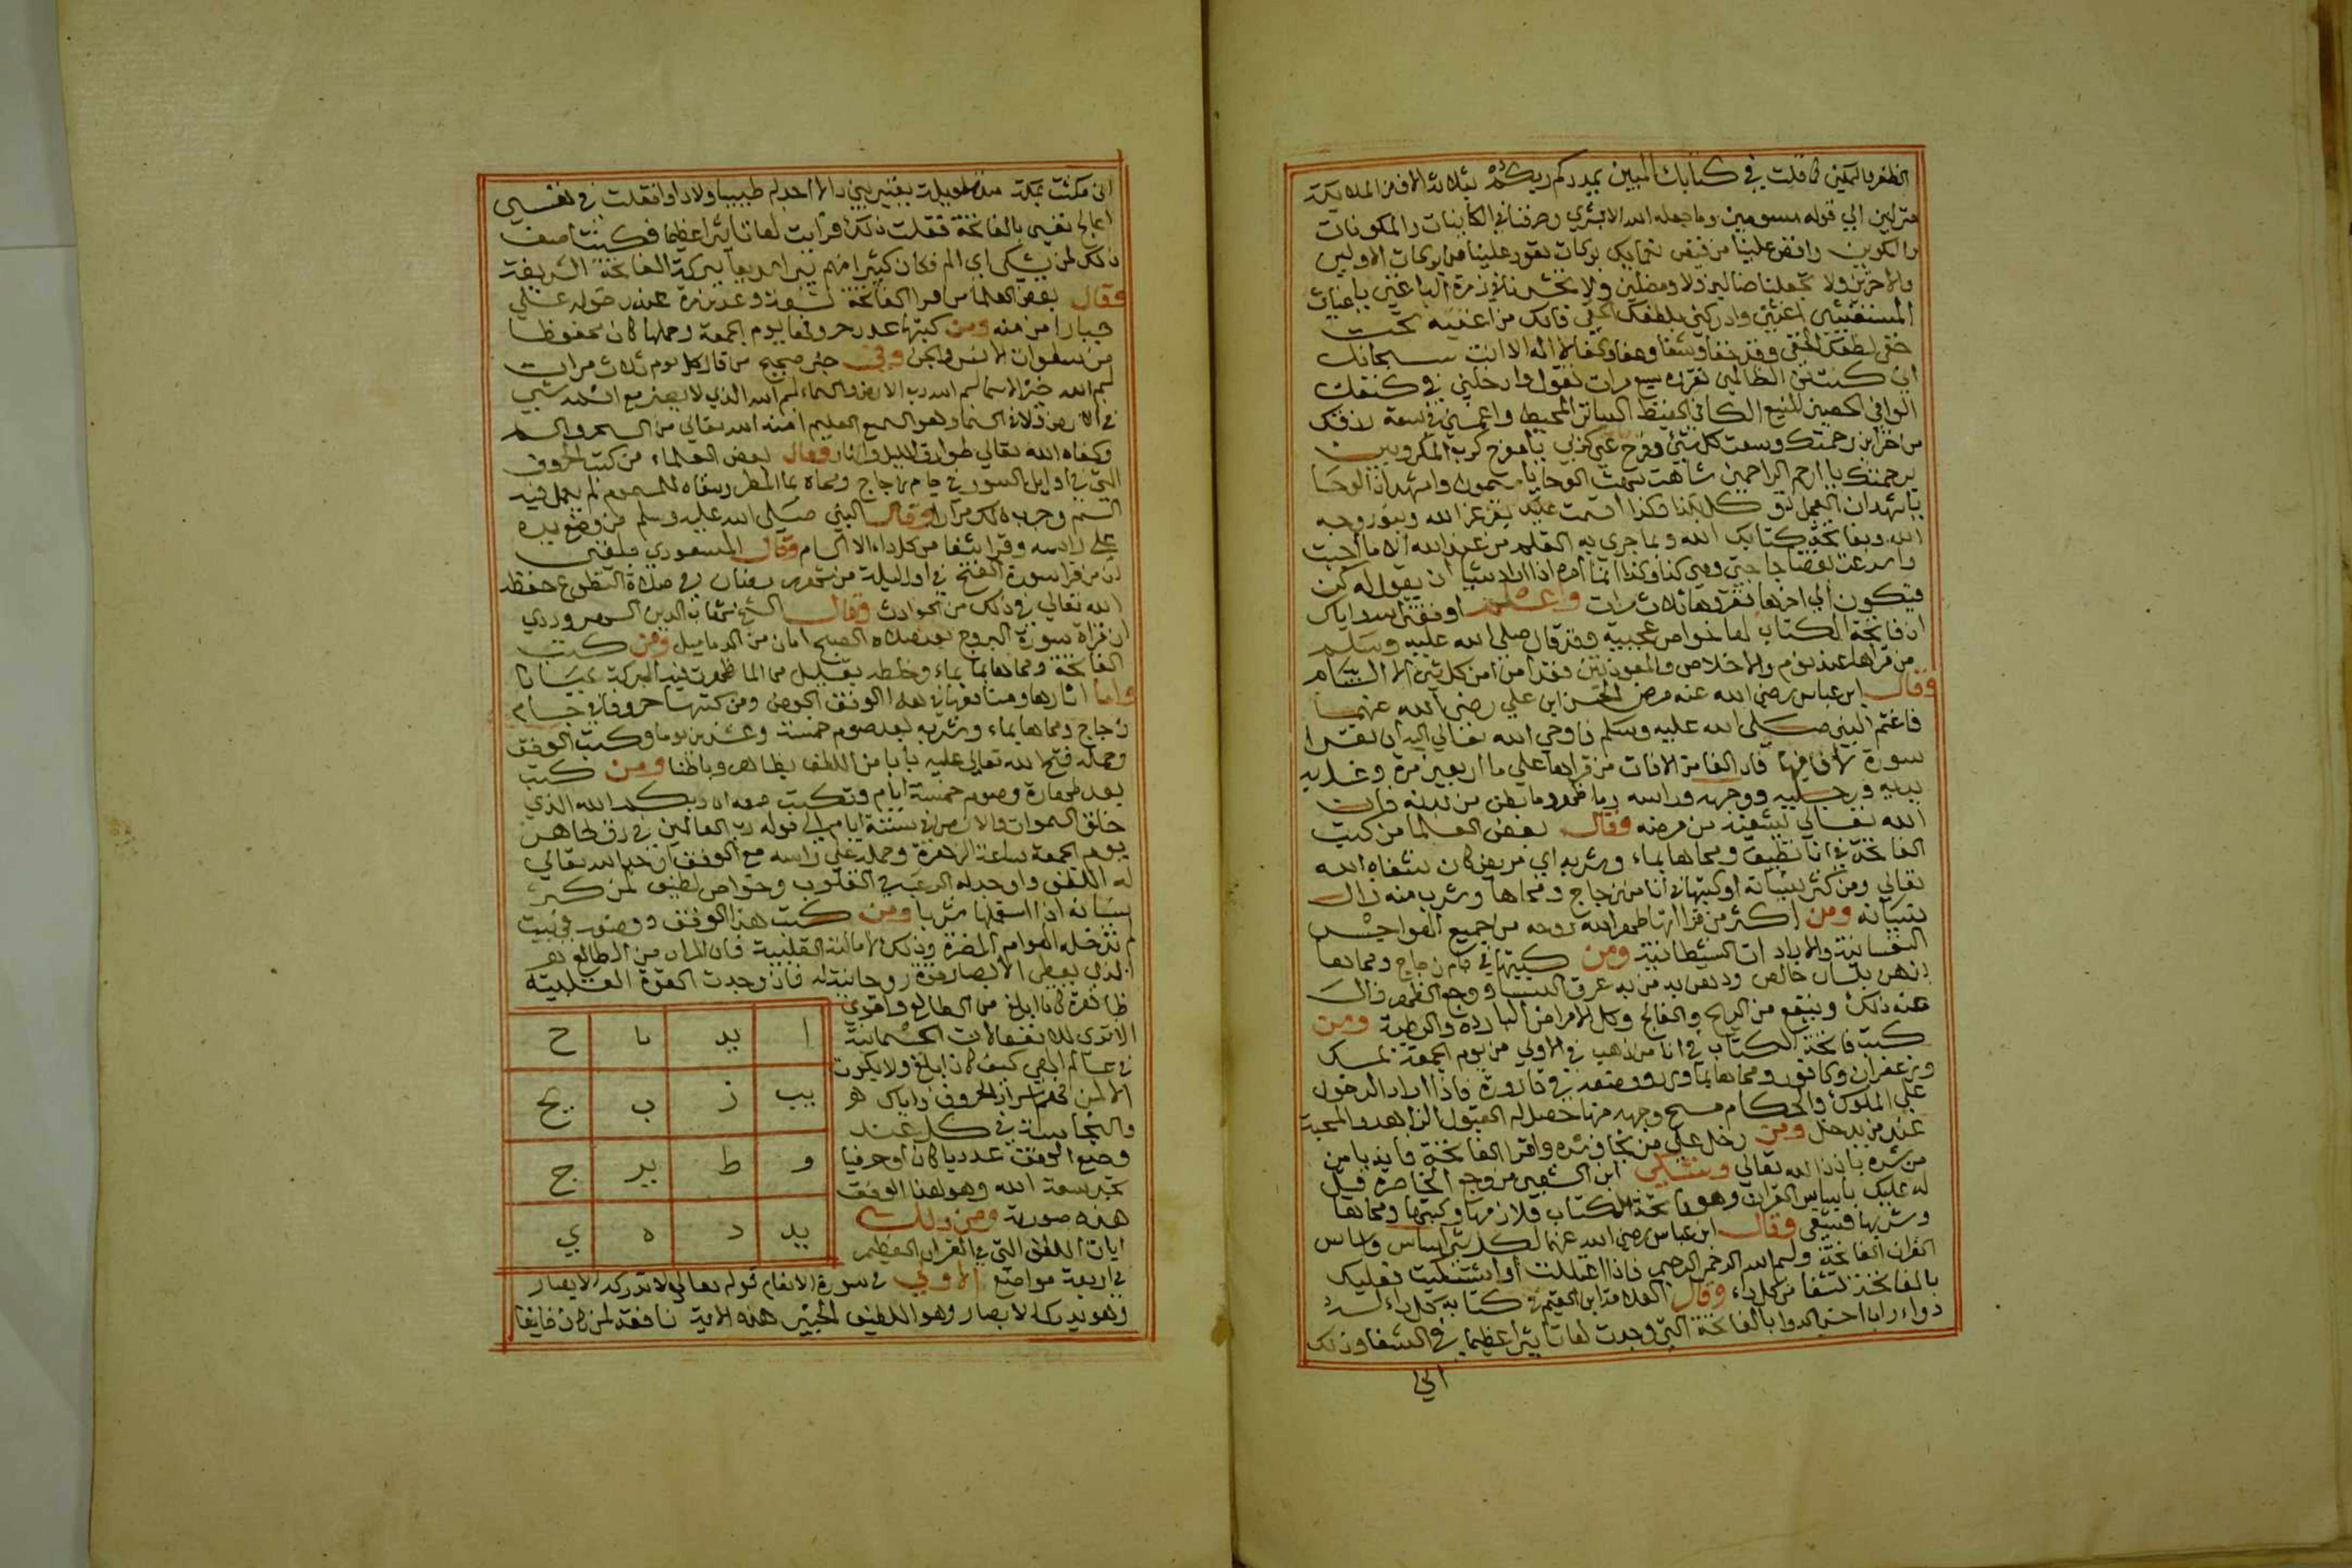 الظفر والتمكين كما قلت في كتابك المبين يمددكم ربكم بثلاثة الاف من الملايكة
منزلين الي قوله مسومين وما جعله الله الا بشري وصرفنا في الكاينات والمكونات
والتكوين وافض علينا من فيض بركات تعود علينا من بركات الاولين
والاخرين ولا تجعلنا ضالين ولا ومضلين ولا تحشرنا في زمرة الباغين يا غياث
المستغيثين اغثني وادركني بلطفك الخفي فانك من اغثته تحت
خفي لطفك الخفي وقد لا اله الا انت سبحانك
اني كنت من الظالمين تقروه سبع مرات تقول وادخلني في كنفك
الوافي الحصين المنيع الكافي الحفيظ الساتر المحيط في سعة رزقك
من خزاين رحمتك وسعت كل شي وفرج عني كربي يا مفرج كرب المكروبين
برحمتك يا ارحم الراحمين شاهت شاهت الوحا يا
كل بكذا وكذا اقسمت عليك بعز عز الله وبنور وجه
الله وبفاتحة كتابك الله وبما جري به القلم من عند الله الا ما اجبت
واسرعت لقضا حاجتي وهي كذا وكذا انما امره اذا اراد شيا ان يقول له كن
فيكون الي اخرها تقروها ثلاث مرات واعلم اوفقني الله واياك
ان فاتحة الكتاب لها خواص عجيبة وقد قال صلي الله عليه وسلم
من قراها عند نوم والاخلاص والمعوذتين فقد امن من كل شي الا السام
وقال ابن عباس رضي الله عنه مرض الحسن ابن علي رضي الله عنهما
فاغتم النبي صلي الله عليه وسلم فاوحي الله تعالي اليه ان تقرا
سورة لا فا فيها فان الفا من الافات من قراها علي ما اربعين مرة وغسل به
يديه ورجليه ووجهه وراسه وما ظهر وما بطن من بدنه فان
الله تعالي يشفيه من مرضه وقال بعض العلما من كتب
الفاتحة في انا نظيف ومحاها بماء وشربه اي مريض كان شفاه الله
تعالي ومن كثر نسيانه او كتبها في انا من زجاج ومحاها وشرب منه زال
نسيانه ومن اكثر من قراتها طهر الله روحه من جميع الفواحش
النفسانية والايرادات الشيطانية ومن كتبها في جام زجاج ومحاها
بدهن بلسان خالص ودهن به من به عرق النسا ووجع الظهر زال
عنه ذلك وينفع من الريح والفالج وكل الامراض الباردة والرطبة ومن
كتب فاتحة الكتاب في انا من ذهب في الاولي من يوم الجمعة بمسك
وزعفران وكافور ومحاها بما ورد ووضعه في قارورة فاذا اراد الدخول
علي الملوك والحكام مسح وجهه منها حصل له القبول والمحبة
عند من يدخل ومن دخل علي من يخاف شره واقرا الفاتحة فانه يامن
من شره باذن الله تعالي وشكي ابن الشعبي من وجع الخاصرة قيل
له عليك باساس القران وهو فاتحة الكتاب فلازمها وكتبها ومحاها
وشربها فشفي وقال ابن عباس رضي الله عنهما لكل شي اساس واساس
القران الفاتحة وبسم الله الرحمن الرحيم فاذا اعتللت او اشتكيت فعليك
بالفاتحة تشفا من كل داء وقال العلامة ابن القيم في كتابه كل داء له
دواء وانا احسن الدوا بالفاتحة التي وجدت لها تاثيرا عظيما في الشفا وذلك
اني
اني مكثت بمكة مدة طويلة يعتريني داء لا اجد له طبيبا ولا دوا فقلت في نفسي
اعالج نفسي بالفاتحة ففعلت ذلك فرايت لها تاثيرا عظيما فكنت اصف
ذلك لمن يشكي اي الم فكان كثيرا منهم يبرا سريعا ببركة الفاتحة الشريفة
وقال بعض العلما من قرا الفاتحة تسعة وعشرين مرة عند دخوله علي
جبارا من منه ومن كتبها عدد حروفها يوم الجمعة وحملها كان محفوظا
من سطوات الانس والجن وفي خبر صحيح من قال كل يوم ثلاث مرات
بسم الله خير الاسما بسم الله رب الارض والسماء بسم الله الذي لا يضر مع اسمه شي
في الارض ولا في السما وهو السميع العليم امنه الله تعالي من السحر والسم
وكفاه الله تعالي طوارق الليل والنهار وقال بعض العلماء من كتب الحروف
التي في اوايل السور في جام زجاج ومحاه بما المطر وسقاه للمسموم لم يعمل فيه
السم وجرب ذلك مرارا وقال النبي صلي الله عليه وسلم من وضع يده
علي راسه وقرا شفا من كل داء الا السام وقال المسعودي بلغني
ان من قرا سورة الفتح في اول ليلة من شهر رمضان في صلاة التطوع حفظه
الله تعالي في ذلك من الحوادث وقال الشيخ شهاب الدين السهروردي
ان قراة سورة البروج بعد صلاة الصبح امان من الدماميل ومن كتب
الفاتحة ومحاها بماء وخلطه بقليل من الما ظهرت فيه البركة عيانا
واما اثارها ومنافعها في هذا الوفق ومن كتبها حروفا في جام
زجاج ومحاها بماء وشربه بعد صوم خمسة وعشرين يوما وكتب الوفق
وحمله فتح الله تعالي عليه بابا من اللطف ظاهر وباطنا ومن كتب
بعد طهارة وصوم خمسة ايام وتكتب معه ان ربكم الله الذي
خلق السموات والارض في ستة ايام الي قوله رب العالمين في رق طاهر
يوم الجمعة ساعة الزهرة وحمله علي راسه مع الوفق الله تعالي
له اللطف واوجد له الرعب في القلوب وخواص لطيف لمن كثر
نسيانه اذا استعملها شربا ومن كتب هذا الوفق ووضعه في بيت
لم تدخله الهوام المضرة وذلك القلبية فان المراد من الطالع هو
الذي يعطي الابصار قوة روحانية له فان وجدت القوة القلبية
ظاهرة كانا ابلغ من الطالع واقوي
الاتري للانفعالات الجسمانية
في عالم كيف كان ابلغ ولا يكون
الا لمن تحكم اسرار الحروف واياك هو
والنجاسة في كل عند
وضع الوفق عدديا كان او حرفيا
تجد سعة الله وهو هذا الوفق
هذه صورته ومن ذلك
ايات اللطف التي في القران العظيم
ا يد يا ح
يب ز ب يج
و ط يو ج
يه د ه ي
في اربعة مواضع الاولي في سورة الانعام قوله تعالي لا تدركه الابصار
وهو يدرك الابصار وهو اللطيف الخبير هذه الاية نافعة لمن كان خايفا